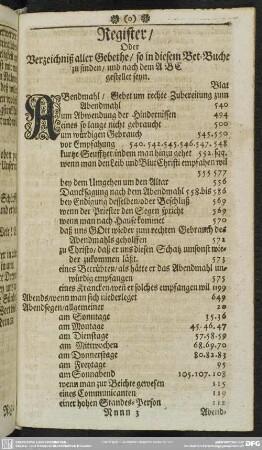 (o)
Register/
Oder
Verzeichniß aller Gebethe/ so in diesem Bet-Buche
zu finden/ und nach dem ABC
gestellet seyn.
Blat
Abendmahl/ Gebet um rechte Zubereitung zum
Abendmahl 540
um Abwendung der Hindernissen 494
eines so lange nicht gebraucht 500
um würdigen Gebrauch 545.550
vor Empfahung 540.542.545.546.547.548
kurtze Seufftzer indem man hinzu gehet 552.sqq.
wenn man den Leib und Blut Christi empfahen wil
555 577
bey dem Umgehen um den Altar 556
Dancksagung nach dem Abendmahl 558.bis 586
bey Endigung desselben oder Beschluß 569
wenn der Priester den Segen spricht 569
wenn man nach Hause kommet 570
daß uns GOtt wieder zum rechten Gebrauch des
Abendmahls geholffen 572
zu Christo/ daß er uns diesen Schatz umsonst wie-
der zukommen läst. 573
eines Betrübten/ als hätte er das Abendmahl un-
würdig empfangen 575
eines Krancken/ wen er solches empfangen wil 1199
Abends/ wenn man sich niederleget 649
Abendsegen/ allgemeiner 20
am Sonntage 35.36
am Montage 45.46.47
am Dienstage 57.58.59
am Mittwochen 68.69.70
am Donnerstage 80.82.83
am Freytage 95
am Sonnabend 105.107.108
wenn man zur Beichte gewesen 115
eines Communicanten 119
einer hohen Standes-Person 112
Nnnn 3 Abend-